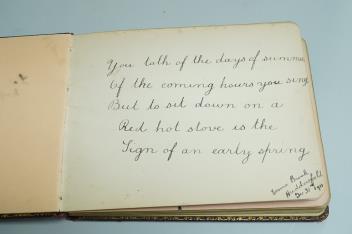 You talk of the days of summer
Of the coming hours you sing
But to sit down on a
Red hot stove is the
Sign of an early spring
Huddersfield
Dec 31st